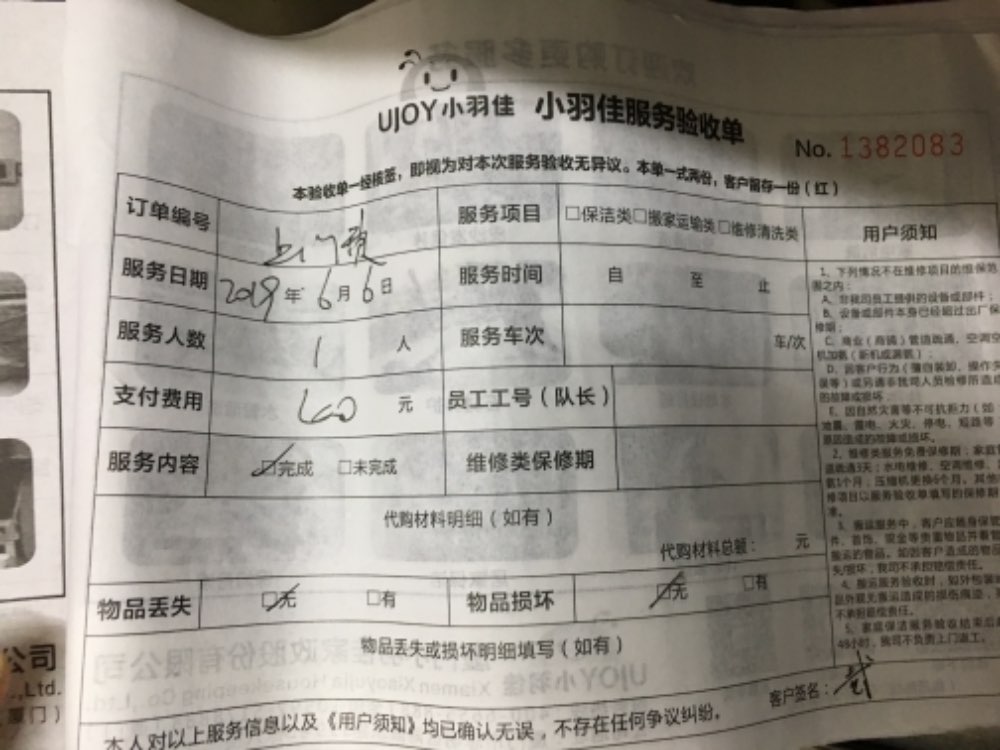 UJOY小羽佳 小羽佳服务验收单
No. 1382083
本验收单一经核签，即视为对本次服务验收无异议。本单一式两份，客户留存一份（红）
订单编号 上门 服务项目 □保洁类□搬家运输类□维修清洗类 用户须知
服务日期 2019年6月6日 服务时间 自 至 止
服务人数 1 人 服务车次 车/次
支付费用 元 员工工号（队长）
服务内容 ☑完成 □未完成 维修类保修期
代购材料明细（如有）
代购材料总额： 元
物品丢失 ☑无 □有 物品损坏 ☑无 □有
物品丢失或损坏明细填写（如有）
客户签名：
本人对以上服务信息以及《用户须知》均已确认无误，不存在任何争议纠纷。
1、下列情况不在维修项目的维保范
围之内：
A、非我司员工提供的设备或部件；
B、设备或部件本身已经超过出厂保
修期；
C、商业（商铺）管道疏通、空调空
机加氨（新机或漏氨）；
D、因客户行为（擅自装卸、操作失
误等）或另请非我司人员检修所造成
的故障或损坏
E、因自然灾害等不可抗拒力（如
地震、雷电、火灾、停电、短路等
原因造成的故障或损坏。
2、维修类服务免费保修期：家庭管
道疏通3天；水电维修、空调维修、
氨1个月；压缩机更换6个月。其他
修项目以服务验收单填写的保修期
准。
3、搬运服务中，客户应随身保管
件、首饰、现金等贵重物品并看管
搬运的物品。如因客户造成的物品
失/损坏，我司不承担赔偿责任。
4、搬运服务验收时，如外包装
品外观无搬运造成的损伤痕迹，
不承担赔偿责任。
5、家庭保洁服务验收结束后超
48小时，我司不负责上门返工。
公司
.,Ltd.
厦门）